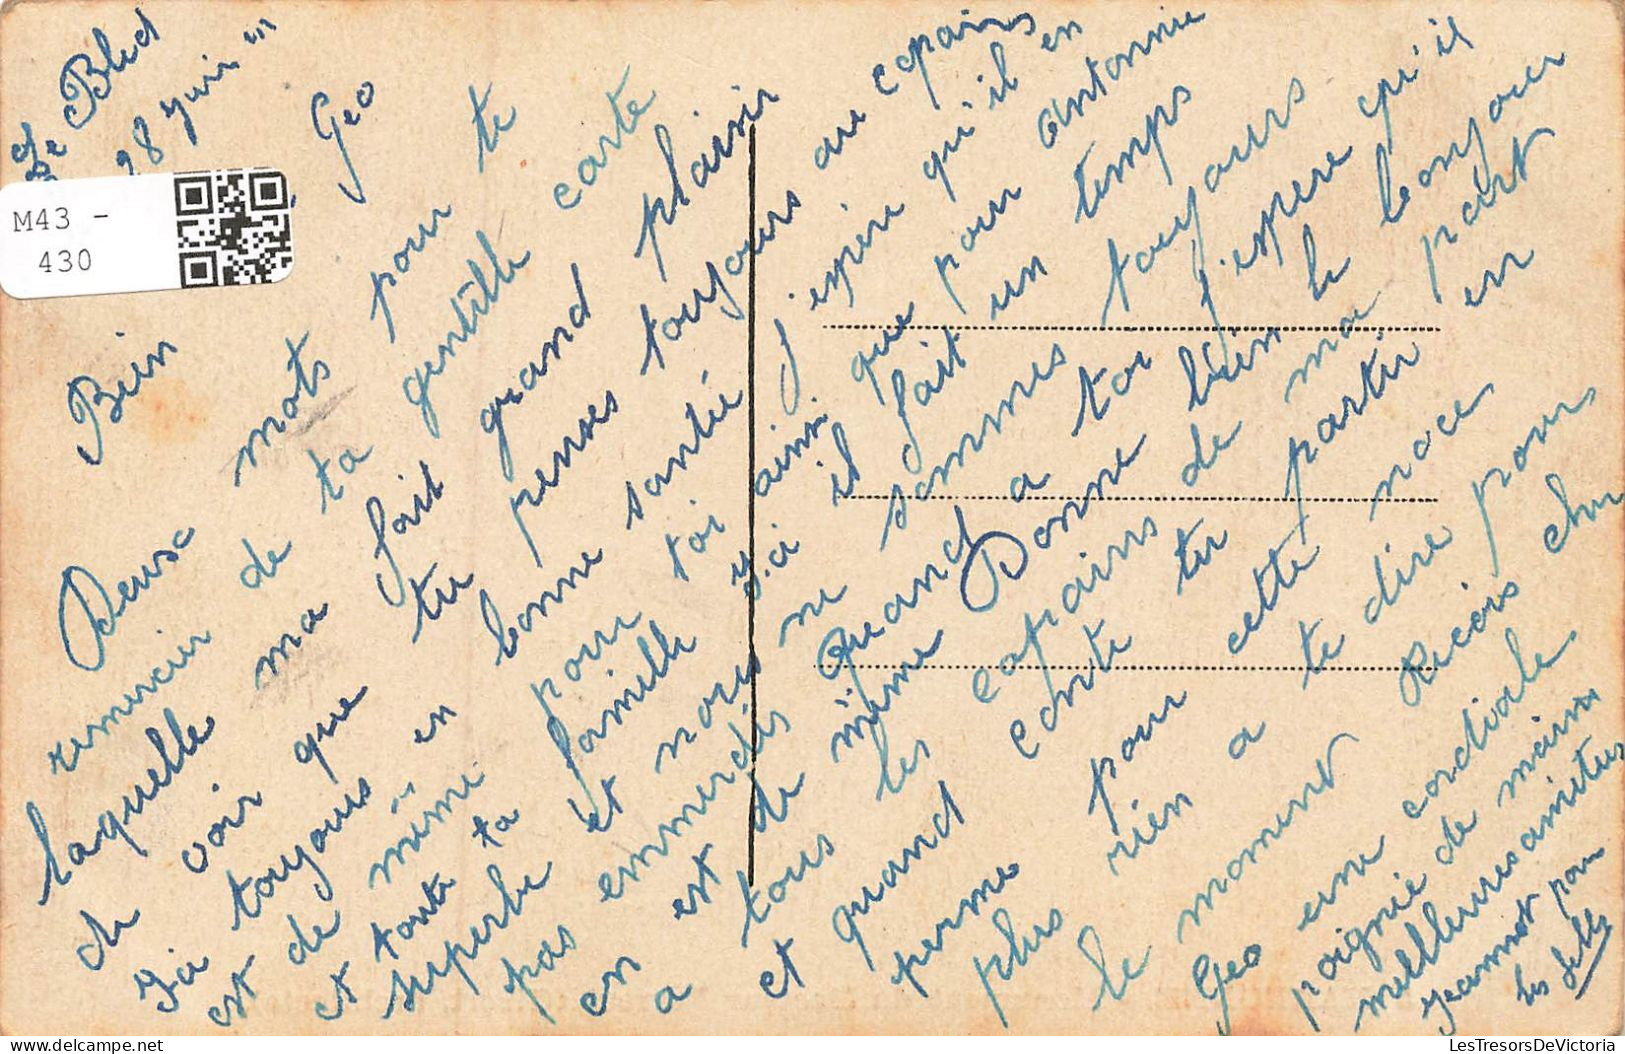 Le Bled
28 Juin
M43 -
430
Bien Geo
Deux mots pour te
remercier de ta gentille carte
laquelle ma fait grand plaisir
de voir que tu penses toujours au copains
Ici toujours en bonne santée j'espère qu'il en
est de même pour toi ainsi que pour Antonnie
et toute ta famille
superbe et nous ne sommes toujours
pas emmerdés Quand a toi j'espere qu'il
en est de même Donne bien le bonjour
a tous les copains de ma part
et quand compte tu partir en
perme pour cette noce
plus rien a te dire pour
le moment Recois cher
Geo une cordiale
poignée de mains
meilleures amitiés
Jeannot pour
les
LesTresorsDeVictoria